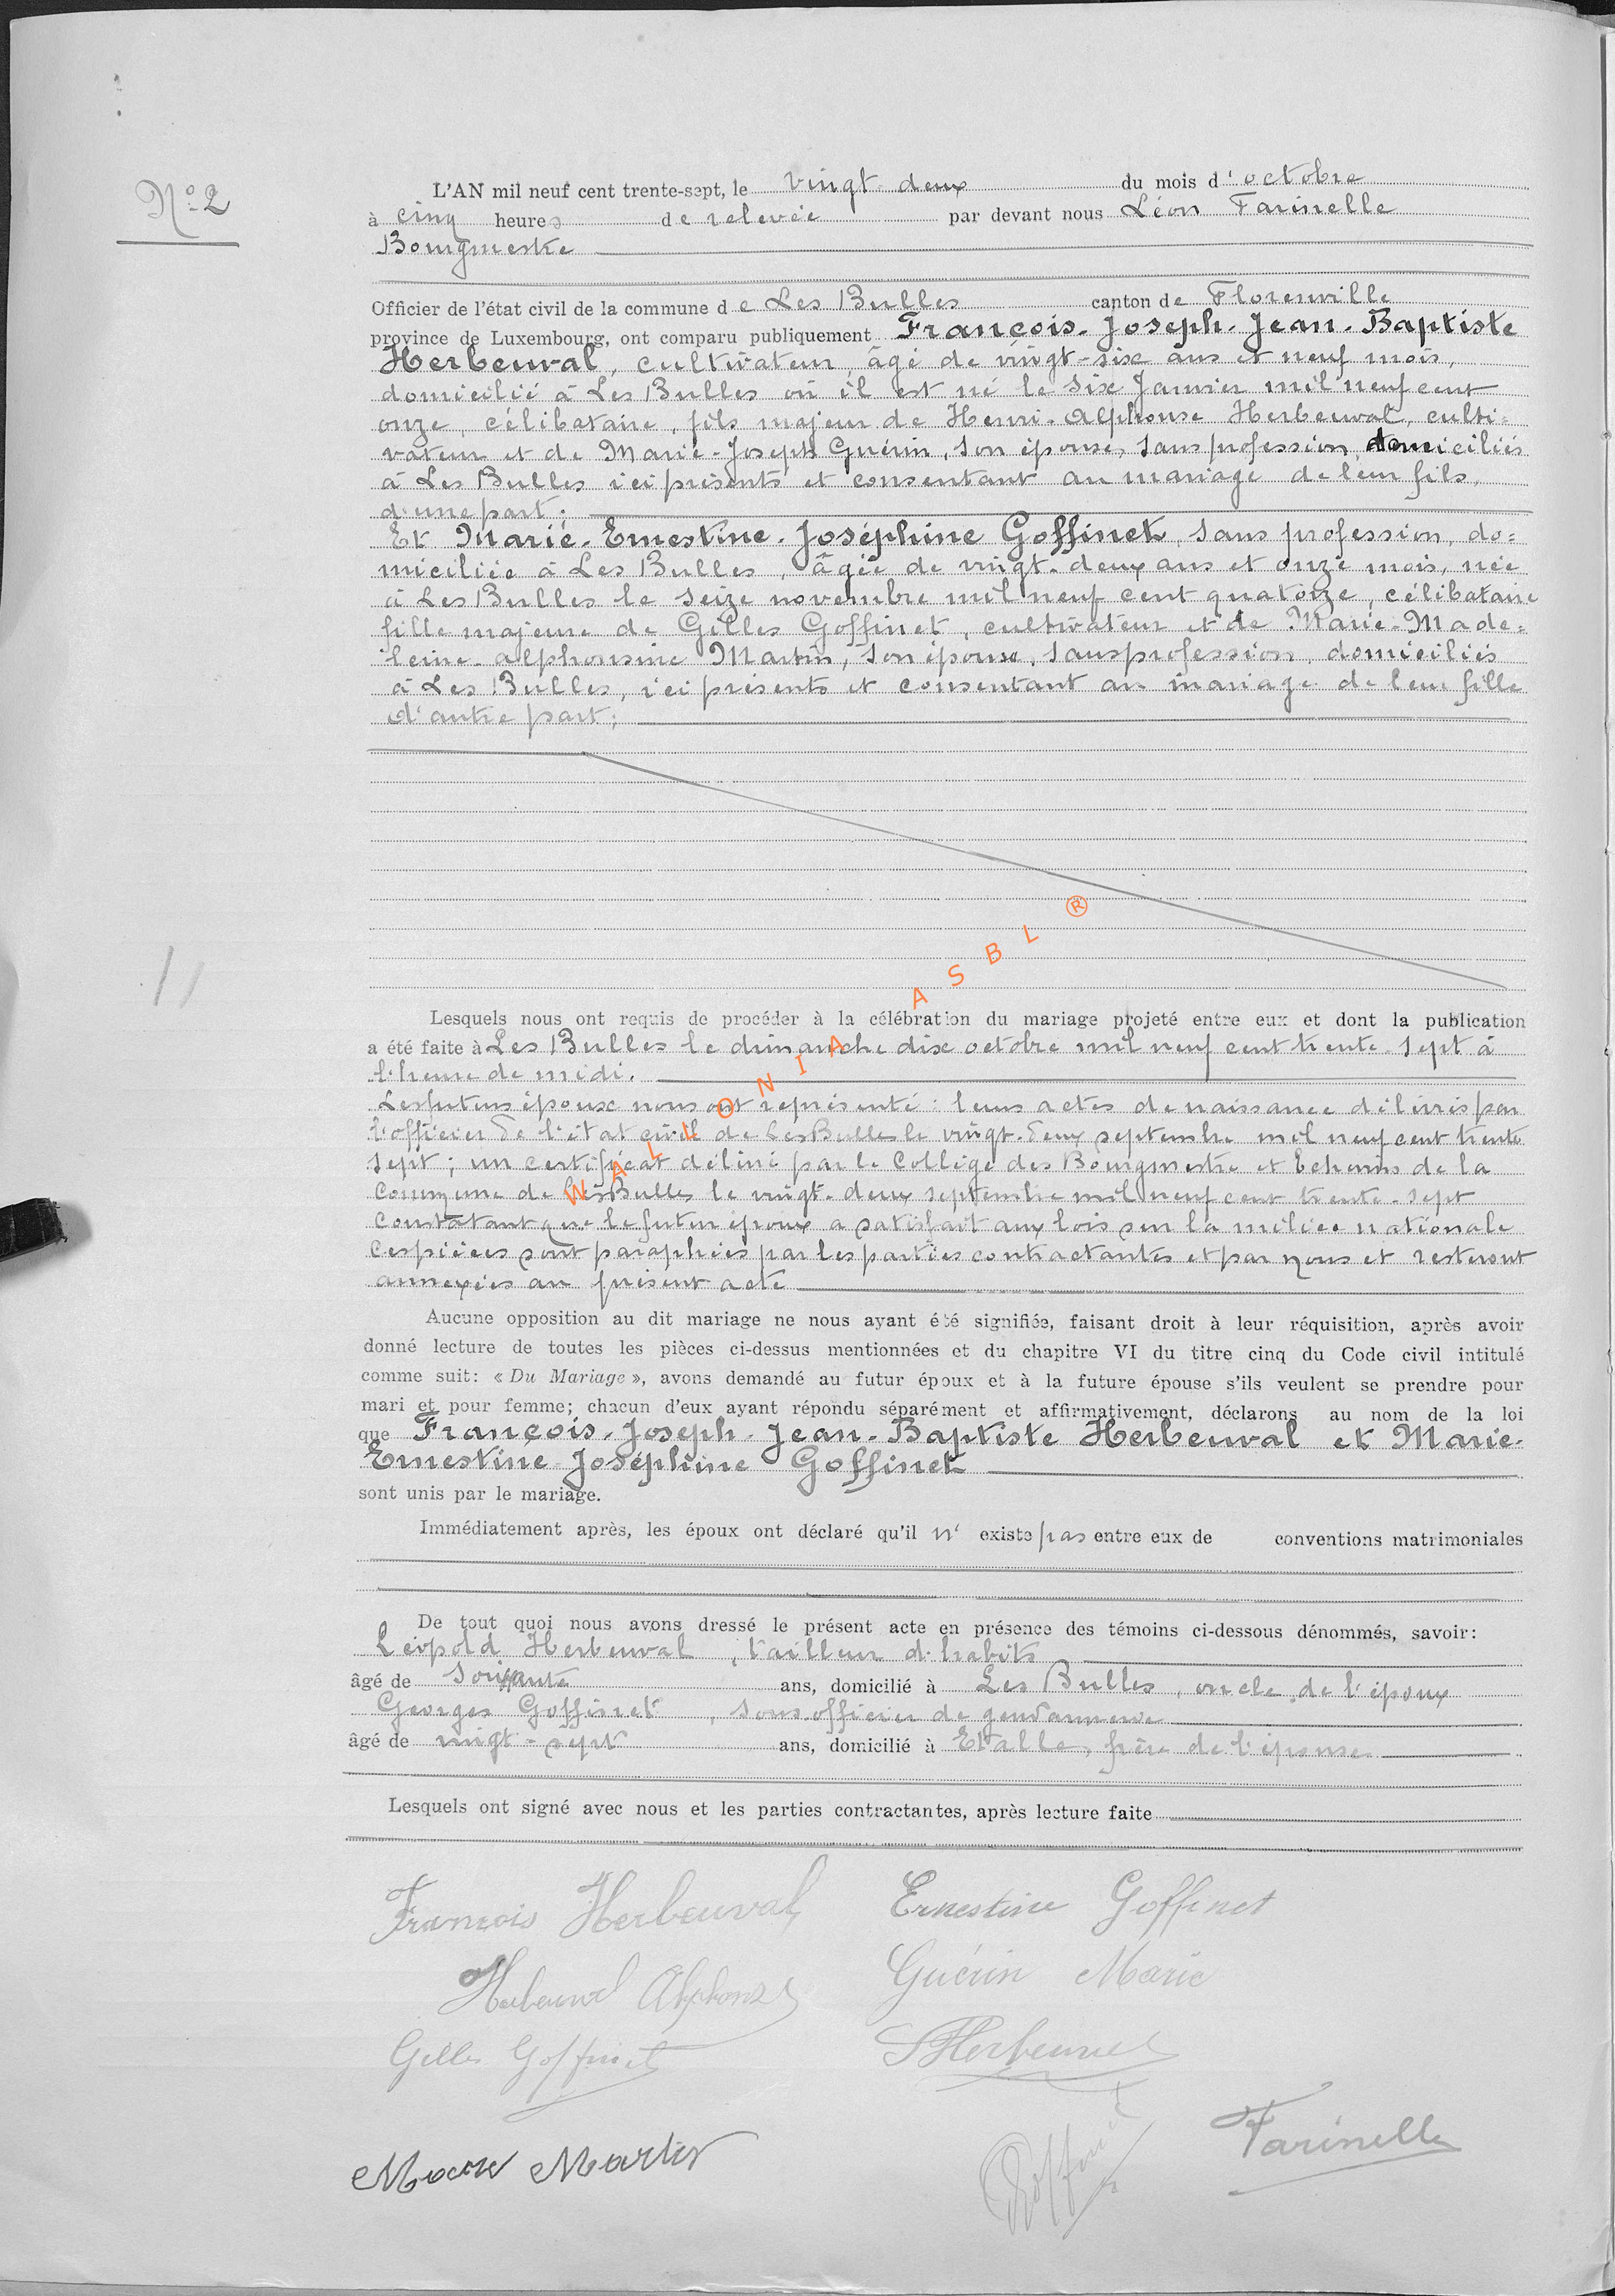 N° 2
L'AN mil neuf cent trente-sept, le vingt-deux du mois d'octobre
à cinq heures de relevée par devant nous Léon Farinelle
Bourgmestre
Officier de l'état civil de la commune de Les Bulles canton de Florenville
province de Luxembourg, ont comparu publiquement François-Joseph-Jean-Baptiste
Herbeuval, cultivateur, âgé de vingt-six ans et neuf mois,
domicilié à Les Bulles où il est né le six Janvier mil neuf cent
onze, célibataire, fils majeur de Henri-Alphonse Herbeuval, culti=
vateur et de Marie-Joseph Guérin, son épouse, sans profession, domiciliés
à Les Bulles ici présents et consentant au mariage de leur fils,
d'une part;
Et Marie-Ernestine-Joséphine Goffinet, sans profession, do=
miciliée à Les Bulles, âgée de vingt-deux ans et onze mois, née
à Les Bulles le seize novembre mil neuf cent quatorze, célibataire
fille majeure de Gilles Goffinet, cultivateur et de Marie-Made=
leine-Alphonsine Martin, son épouse, sans profession, domiciliés
à Les Bulles, ici présents et consentant au mariage de leur fille
d'autre part;
Lesquels nous ont requis de procéder à la célébration du mariage projeté entre eux et dont la publication
a été faite à Les Bulles le dimanche dix octobre mil neuf cent trente-sept à
l'heure de midi.
Les futurs époux nous ont représenté: leurs actes de naissance délivrés par
l'officier de l'état civil de Les Bulles le vingt-deux septembre mil neuf cent trente
sept; un certificat délivré par le Collège des Bourgmestre et Echevins de la
Commune de Les Bulles le vingt-deux septembre mil neuf cent trente-sept
constatant que le futur époux a satisfait aux lois sur la milice nationale
Ces pièces sont paraphées par les parties contractantes et par nous et resteront
annexées au présent acte
Aucune opposition au dit mariage ne nous ayant été signifiée, faisant droit à leur réquisition, après avoir
donné lecture de toutes les pièces ci-dessus mentionnées et du chapitre VI du titre cinq du Code civil intitulé
comme suit: « Du Mariage », avons demandé au futur époux et à la future épouse s'ils veulent se prendre pour
mari et pour femme; chacun d'eux ayant répondu séparément et affirmativement, déclarons au nom de la loi
que François-Joseph-Jean-Baptiste Herbeuval et Marie-
Ernestine-Joséphine Goffinet
sont unis par le mariage.
Immédiatement après, les époux ont déclaré qu'il n'existe pas entre eux de conventions matrimoniales
De tout quoi nous avons dressé le présent acte en présence des témoins ci-dessous dénommés, savoir:
Léopold Herbeuval, tailleur d'habits
âgé de soixante ans, domicilié à Les Bulles, oncle de l'époux
Georges Goffinet, sous-officier de gendarmerie
âgé de vingt-sept ans, domicilié à Etalle, frère de l'épouse
Lesquels ont signé avec nous et les parties contractantes, après lecture faite
François Herbeuval Ernestine Goffinet
Herbeuval Alphonse Guérin Marie
Gilles Goffinet Herbeuval
Martin Goffinet Farinelle
WALLONIA ASBL ®